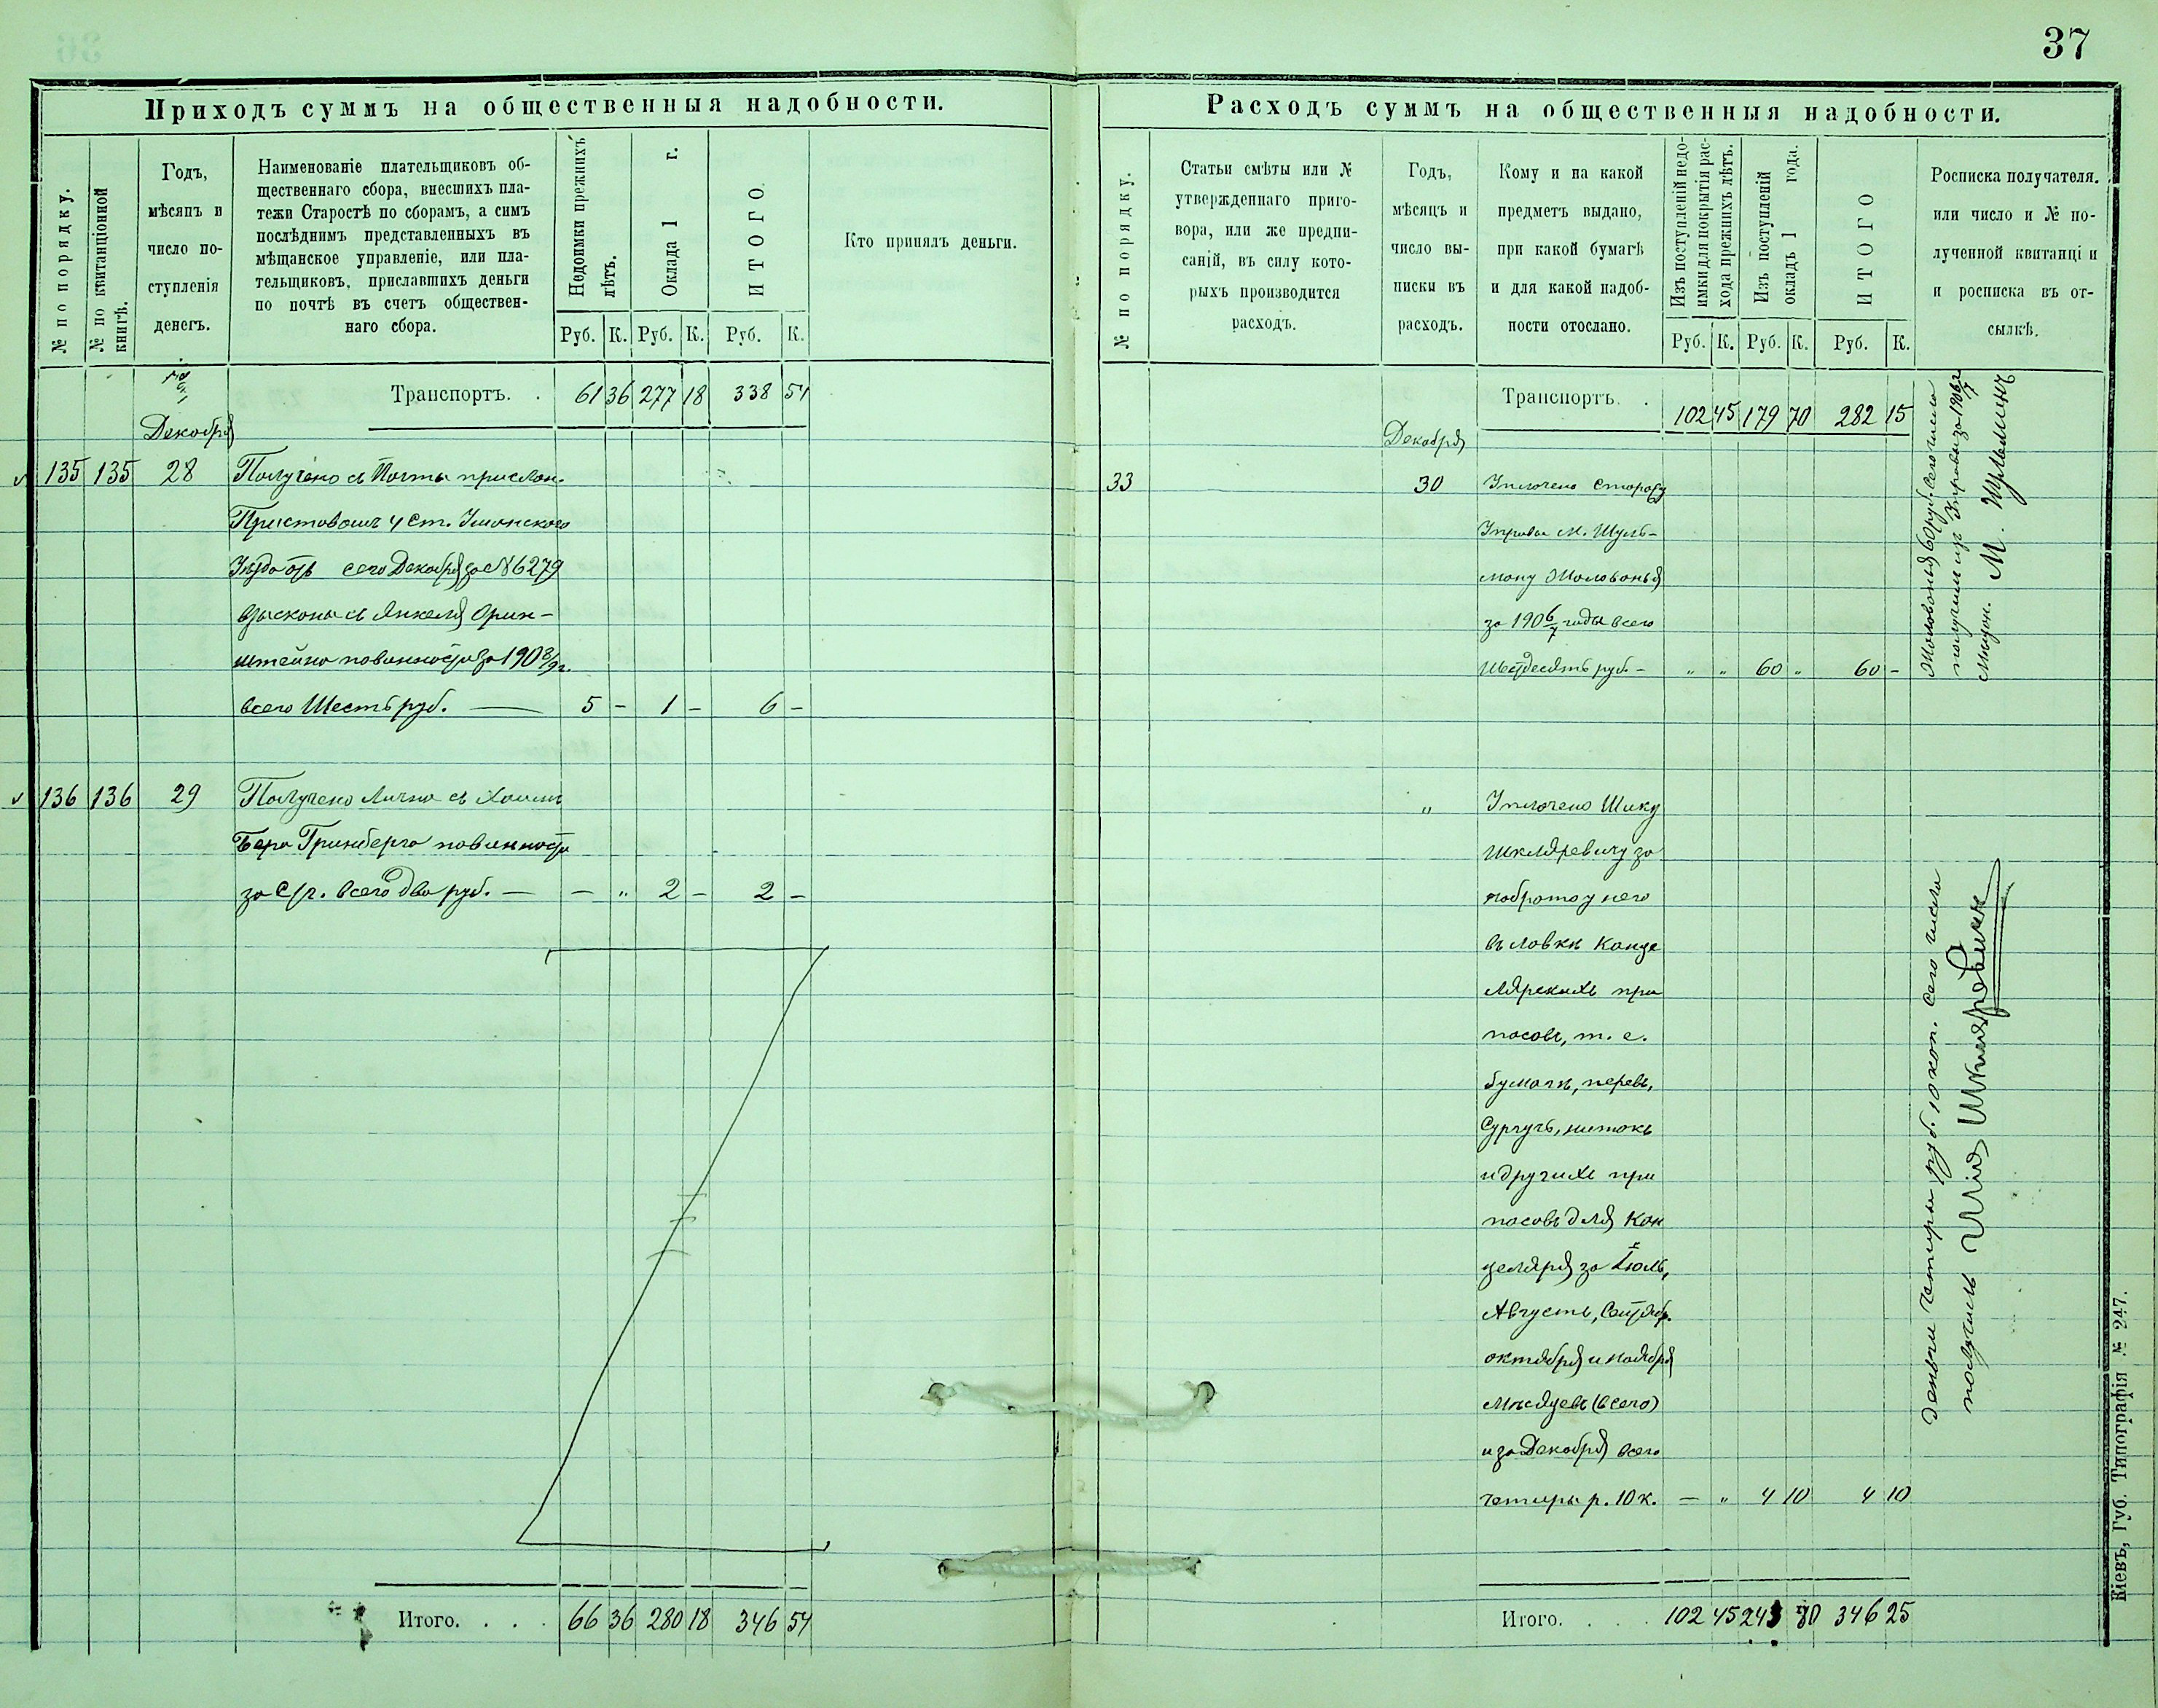 37
Приходъ суммъ на общественныя надобности.
№ по порядку.
№ по квитанціонной
книгѣ.
Годъ,
мѣсяцъ и
число по-
ступленія
денегъ.
Наименованіе плательщиковъ об-
щественнаго сбора, внесшихъ пла-
тежи Старостѣ по сборамъ, а симъ
послѣднимъ представленныхъ въ
мѣщанское управленіе, или пла-
тельщиковъ, приславшихъ деньги
по почтѣ въ счетъ обществен-
наго сбора.
Недоимки прежнихъ
лѣтъ.
Оклада 1 г.
ИТОГО.
Кто принялъ деньги.
Руб. К. Руб. К. Руб. К.
Транспортъ. . 61 36 277 18 338 54
Декабря
135 135 28 Получено съ Почты прислан.
Приставомъ 4 ст. Уманского
Уѣзда отъ сего Декабря за №6279
взысконы съ Янкеля Орин-
штейна повинности за 1908/9г.
всего Шесть руб. — 5 - 1 - 6 -
136 136 29 Получено Лично съ Хаима
Бера Гринберга повинности
за с/г. всего два руб. — — " 2 - 2 -
Итого. . . . 66 36 280 18 346 54
Расходъ суммъ на общественныя надобности.
№ по порядку.
Статьи смѣты или №
утвержденнаго приго-
вора, или же предпи-
саній, въ силу кото-
рыхъ производится
расходъ.
Годъ,
мѣсяцъ и
число вы-
писки въ
расходъ.
Кому и на какой
предметъ выдано,
при какой бумагѣ
и для какой надоб-
ности отослано.
Изъ поступленій недо-
имки для покрытія рас-
хода прежнихъ лѣтъ.
Изъ поступленій
окладъ 1 года.
ИТОГО
Росписка получателя.
или число и № по-
лученной квитанціи
и росписка въ от-
сылкѣ.
Руб. К. Руб. К. Руб. К.
Транспортъ. . 102 45 179 70 282 15
Декабря
33 30 Уплочено Сторожу
Управы М. Шуль-
ману Жалованья
за 1906/7 годы всего
шестдесять руб. - " " 60 " 60 -
Жалованья 60 руб. сего числа
получилъ изъ Управы за 1906/7 г
М. Шульманъ
" Уплочено Шику
Шкляревичу за
забрато у него
въ лавкѣ Канце
лярскихъ при
пасовъ, т. е.
бумаги, перевъ,
Сургучъ, нитокъ
и другихъ при
пасовъ для Кан
целяріи за Іюль,
Августъ, Сентябр.
октября и ноября
Мѣсяцевъ (всего)
и за Декабря всего
четыры р. 10 к. — " 4 10 4 10
Деньги четыры руб. 10 коп. сего числа
получилъ Шія Шкляревичъ
Итого. . . . 102 45 243 80 346 25
Кіевъ, Губ. Типографія № 247.